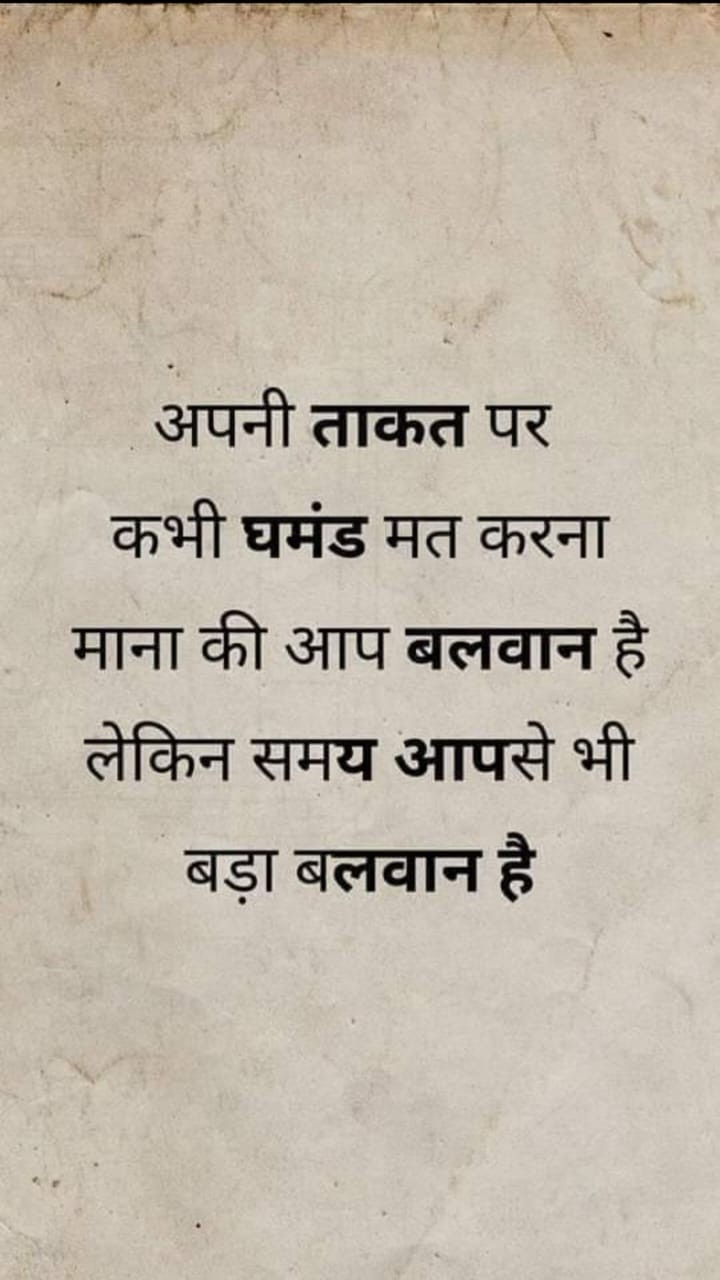 अपनी ताकत पर
कभी घमंड मत करना
माना की आप बलवान है
लेकिन समय आपसे भी
बड़ा बलवान है